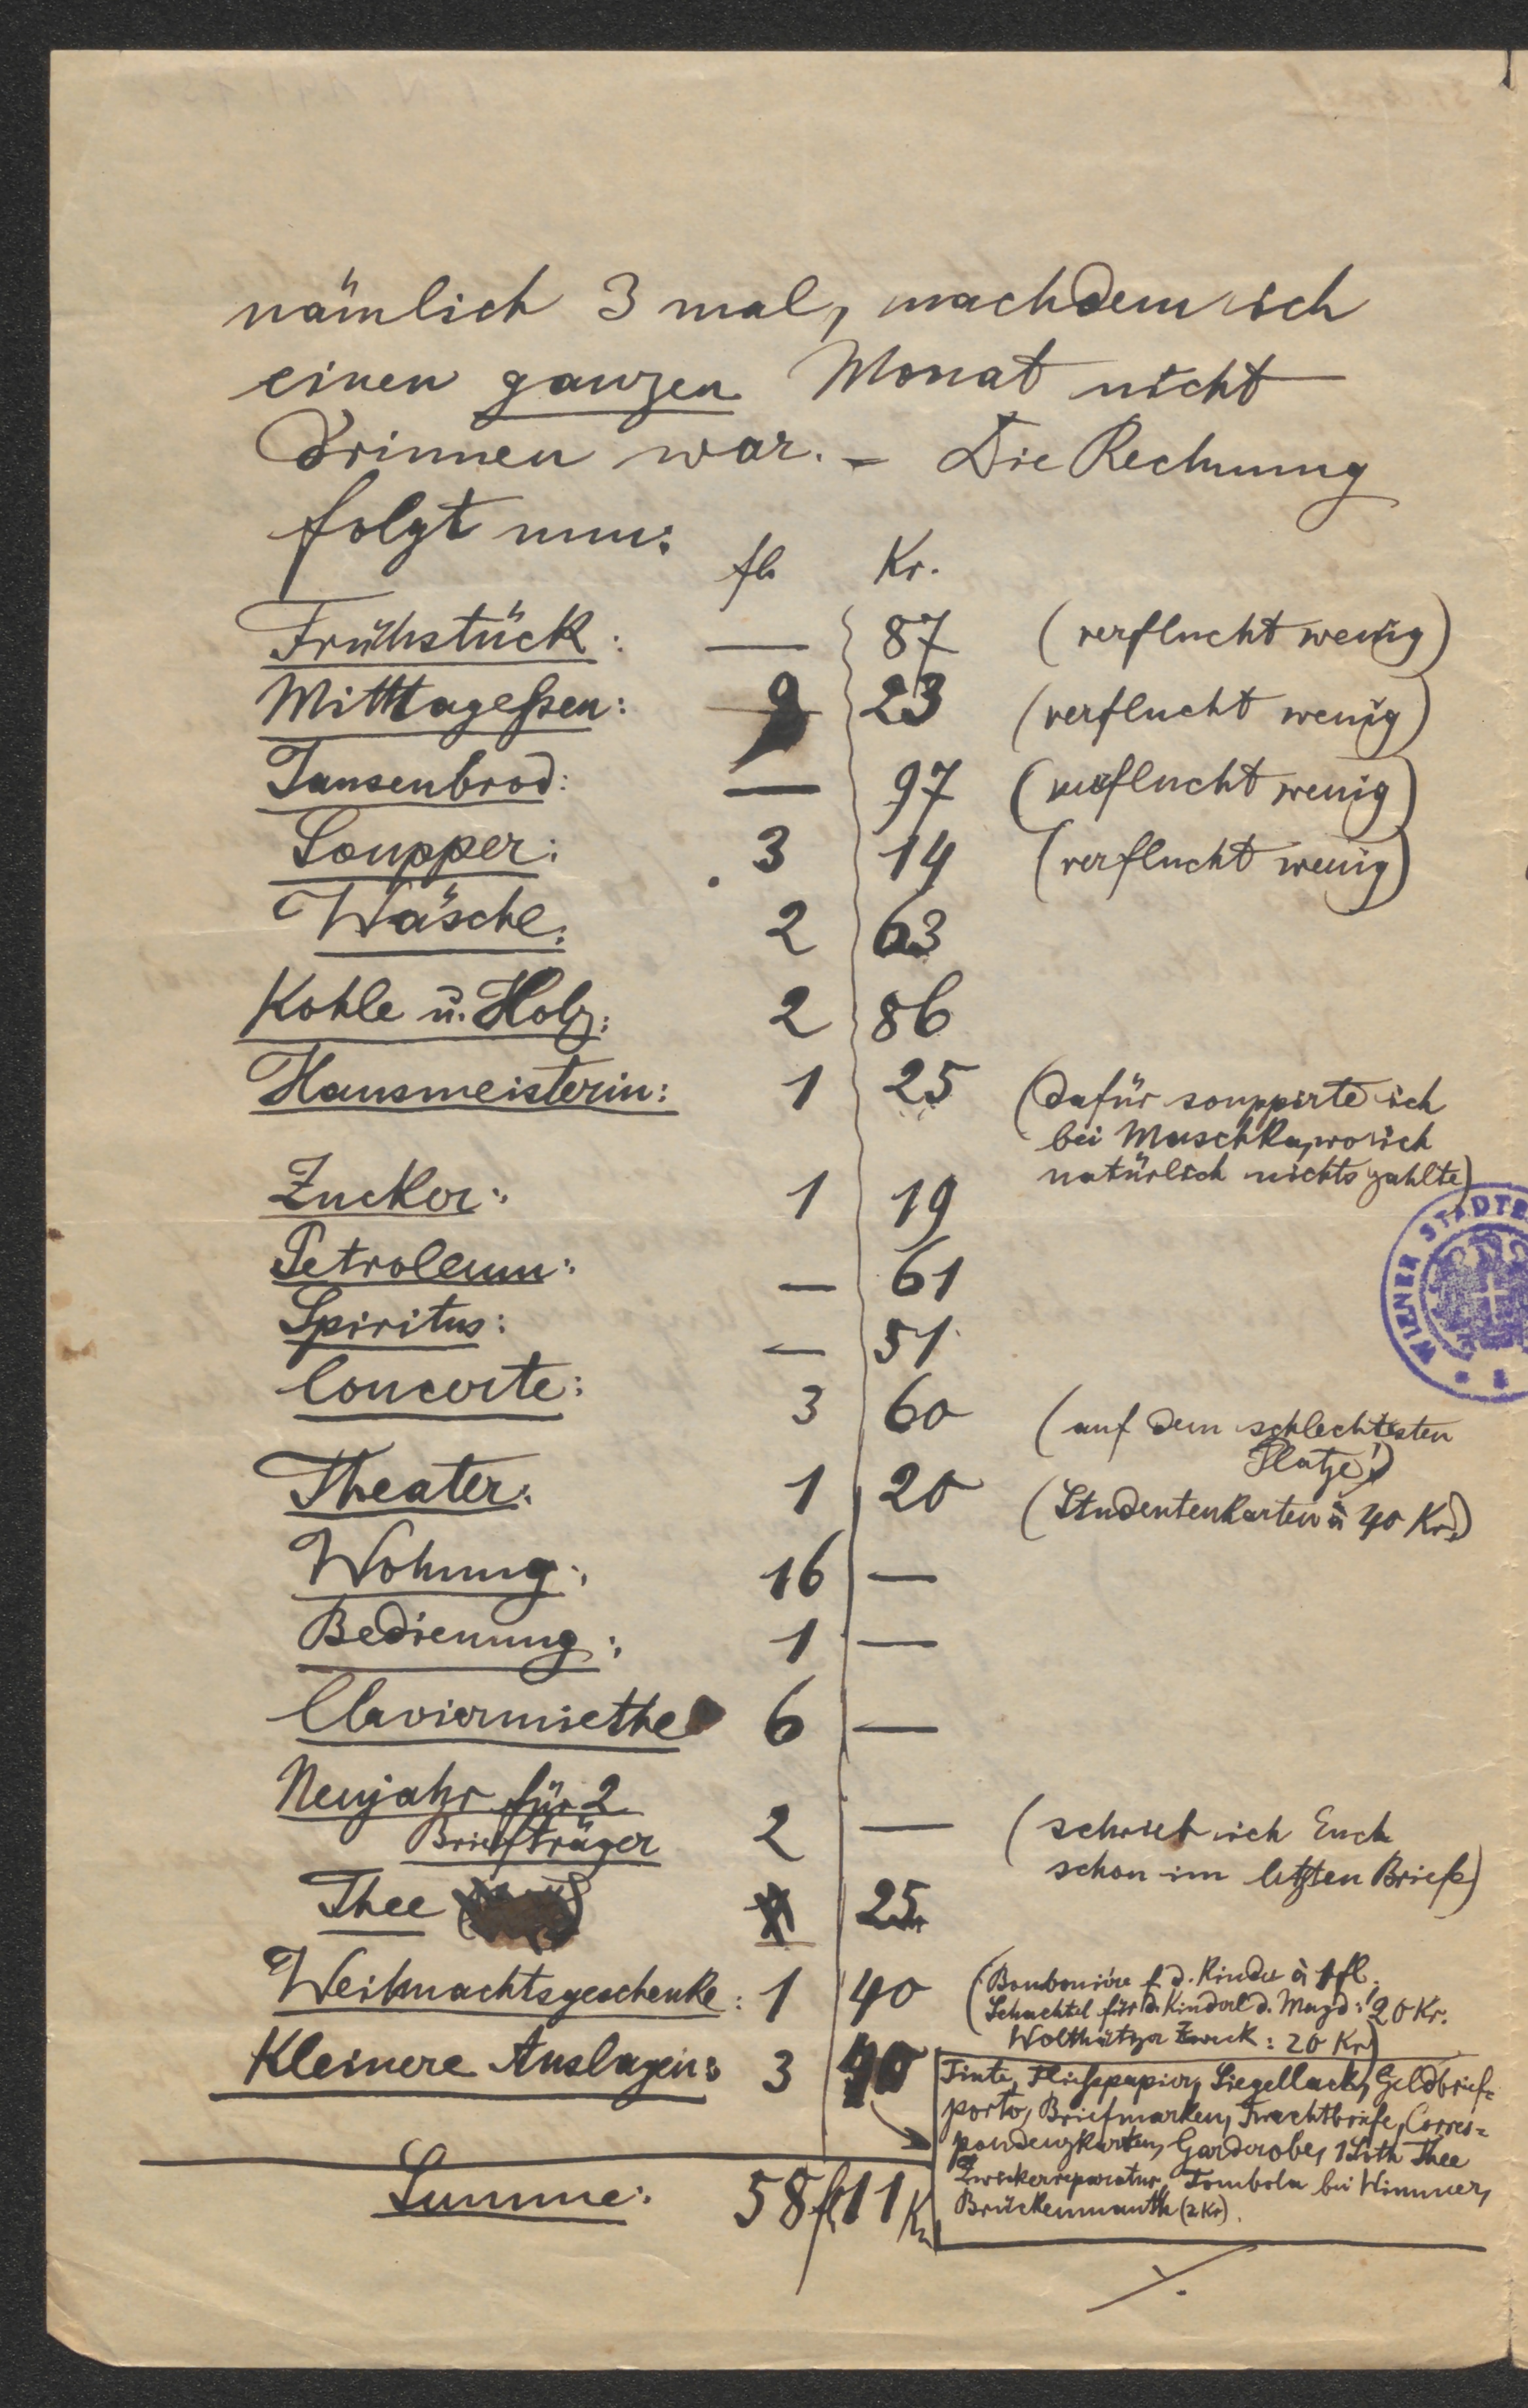 nämlich 3 mal, nachdem ich
einen ganzen Monat nicht
drinnen war. – Die Rechnung
folgt nun:
fl. Kr.
Frühstück: — 87 (verflucht wenig)
Mitttagessen: 9 23 (verflucht wenig)
Jausenbrod: — 97 (verflucht wenig)
Soupper: 3 14 (verflucht wenig)
Wäsche: 2 63
Kohle u. Holz: 2 86
Hausmeisterin: 1 25 (dafür soupperte ich
bei Muschka, wo ich
natürlich nichts zahlte)
Zucker: 1 19
Petroleum: — 61
Spiritus: — 51
Concerte: 3 60 (auf dem schlechtesten
Platze!)
Theater: 1 20 (Studentenkarten à 40 Kr.)
Wohnung: 16 —
Bedienung: 1 —
Claviermiethe 6 —
Neujahr für 2
Briefträger 2 — (schrieb ich Euch
schon im letzten Briefe)
Thee 25
Weihnachtsgeschenke: 1 40 (Bonboniére f. d. Kinder à 1 fl.
Schachtel für d. Kinderl d. Magd: 20 Kr.
Wolthätger Zweck: 20 Kr)
Kleinere Auslagen: 3 40
Tinte, Fliesspapier, Siegellack, Geldbrief=
porto, Briefmarken, Frachtbriefe, Corres=
pondenzkarten, Garderobe, 1 Loth Thee
Zwickerreparatur, Tombola bei Wimmer,
Brückenmauth (2 Kr).
Summe: 58 fl 11 Kr
WIENER STADTB